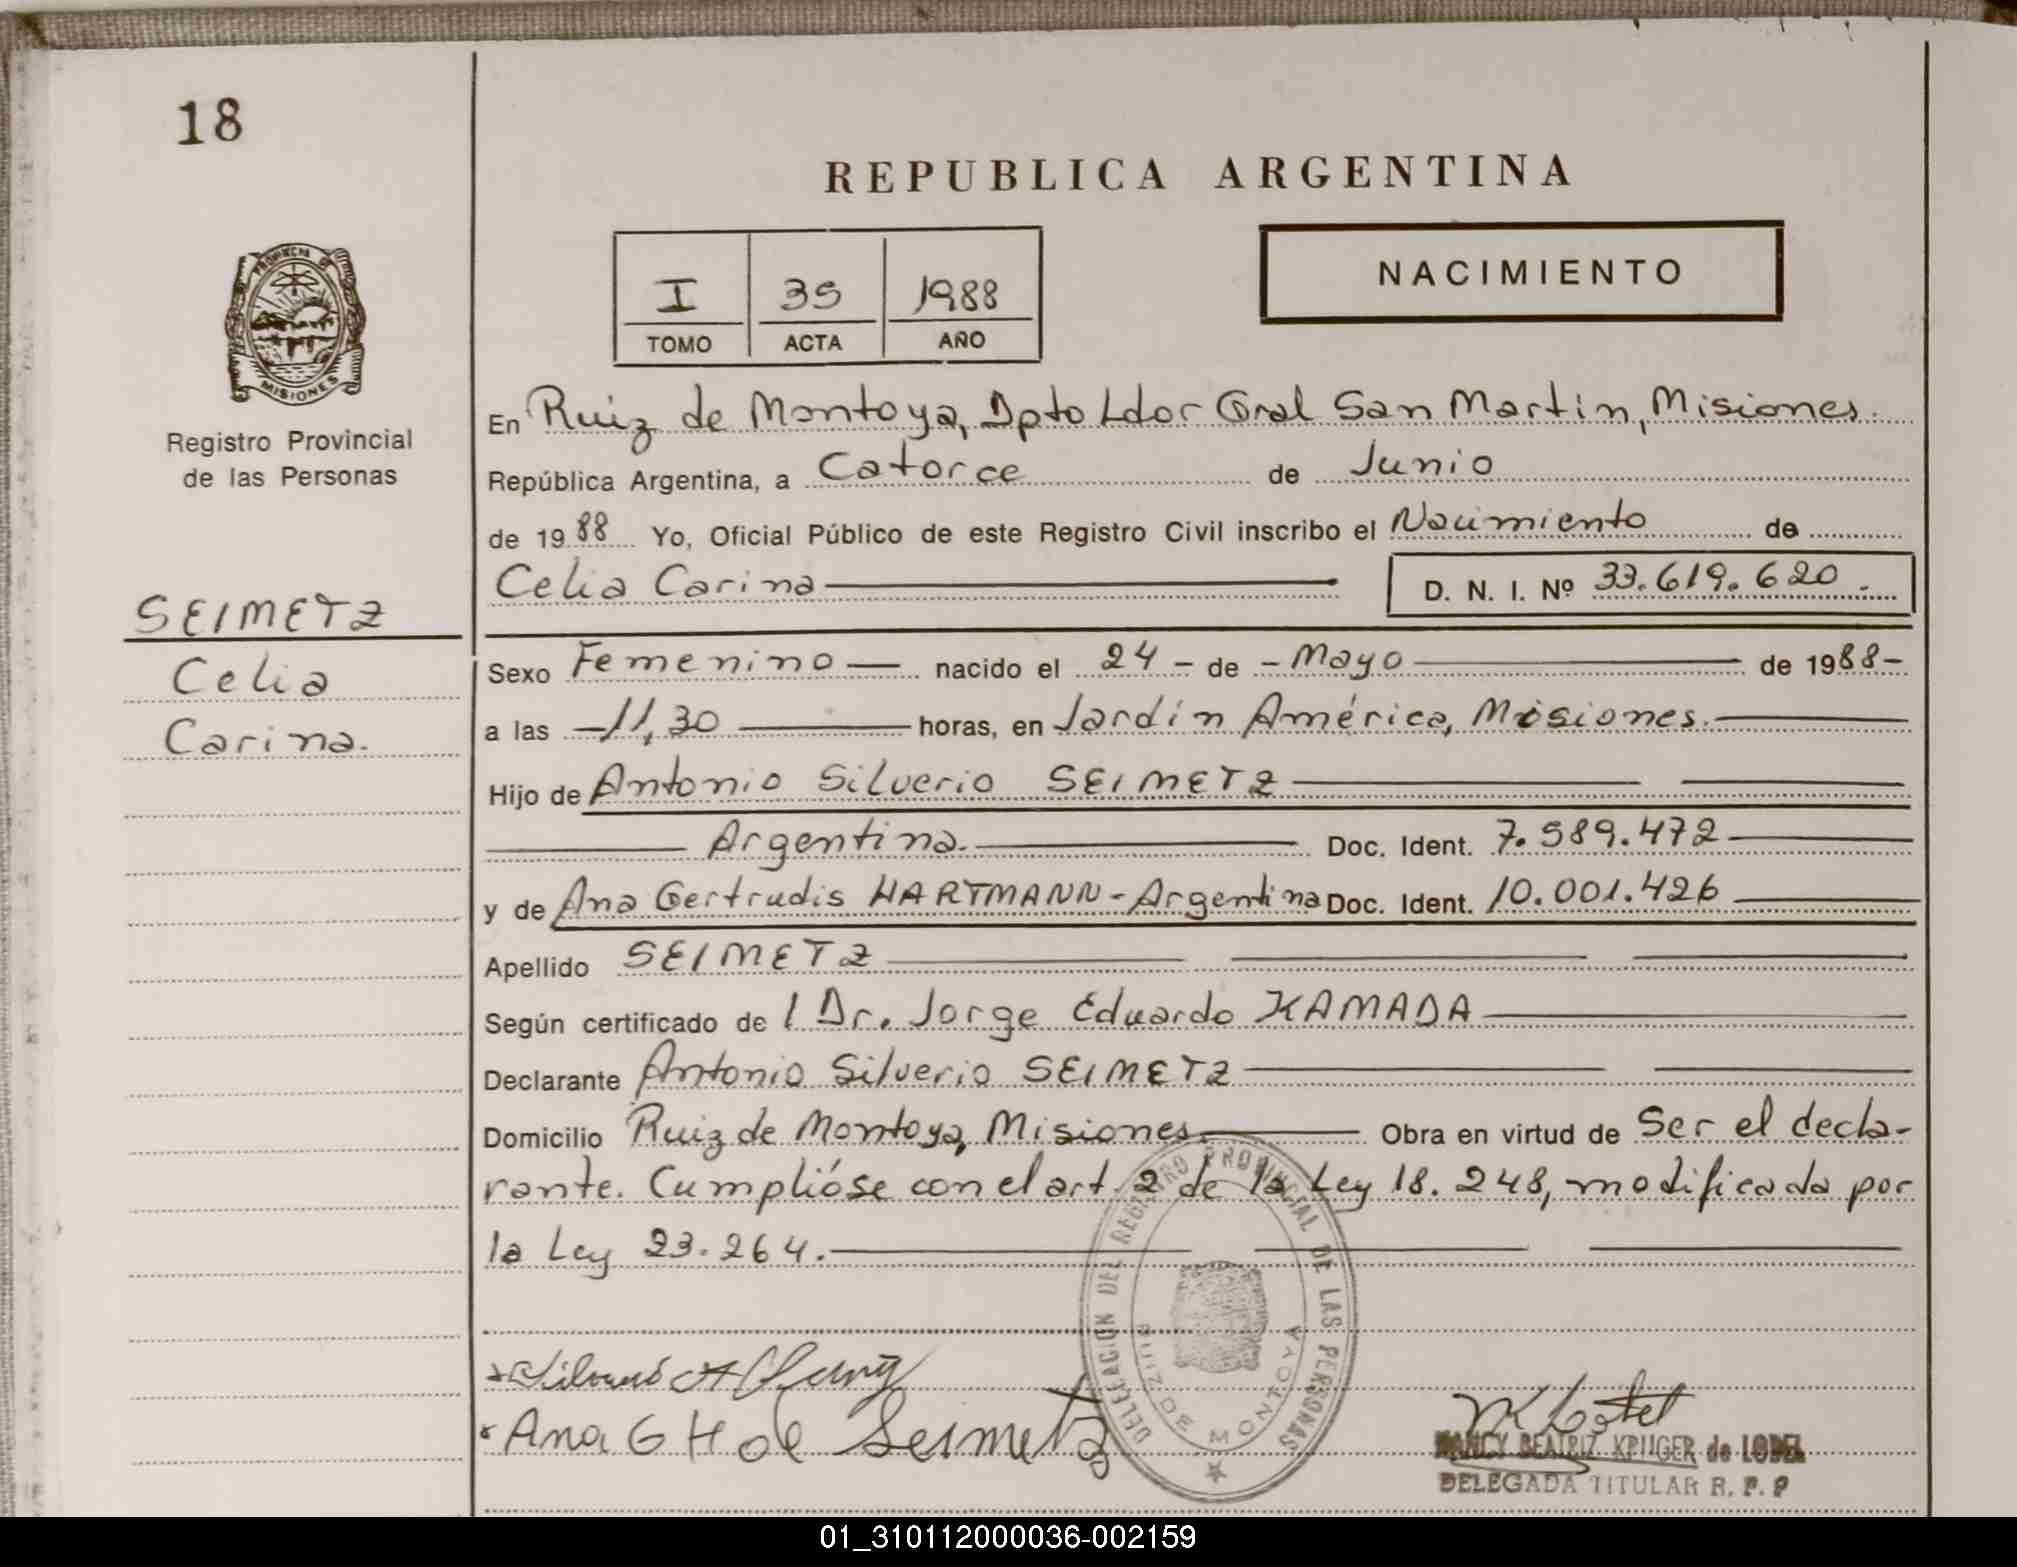 18
REPUBLICA ARGENTINA
NACIMIENTO
I 35 1988
TOMO ACTA AÑO
PROVINCIA DE
MISIONES
Registro Provincial
de las Personas
SEIMETZ
Celia
Carina.
En Ruiz de Montoya, Dpto Ldor Gral San Martín, Misiones.
República Argentina, a Catorce de Junio
de 1988 Yo, Oficial Público de este Registro Civil inscribo el Nacimiento de
Celia Carina D. N. I. Nº 33.619.620.
Sexo Femenino nacido el 24 - de - Mayo de 1988-
a las -11,30 horas, en Jardín América, Misiones.
Hijo de Antonio Silverio SEIMETZ
Argentina. Doc. Ident. 7.589.472
y de Ana Gertrudis HARTMANN - Argentina Doc. Ident. 10.001.426
Apellido SEIMETZ
Según certificado de l Dr. Jorge Eduardo KAMADA
Declarante Antonio Silverio SEIMETZ
Domicilio Ruiz de Montoya, Misiones. Obra en virtud de Ser el decla-
rante. Cumplióse con el art. 2 de la Ley 18.248, modificada por
la Ley 23.264.
DELEGACION DEL REGISTRO PROVINCIAL DE LAS PERSONAS
RUIZ DE MONTOYA
Ana G H de Seimetz
NANCY BEATRIZ KRUGER de LODEL
DELEGADA TITULAR R. P. P
01_310112000036-002159